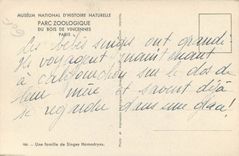 MUSÉUM NATIONAL D'HISTOIRE NATURELLE
PARC ZOOLOGIQUE
DU BOIS DE VINCENNES
PARIS
Les bébés singes ont grandi
ils voyagent maintenant
à califourchon sur le dos de
leur mère et savent déjà
se regarder dans une glace!
Une famille de Singes Hamadryas.